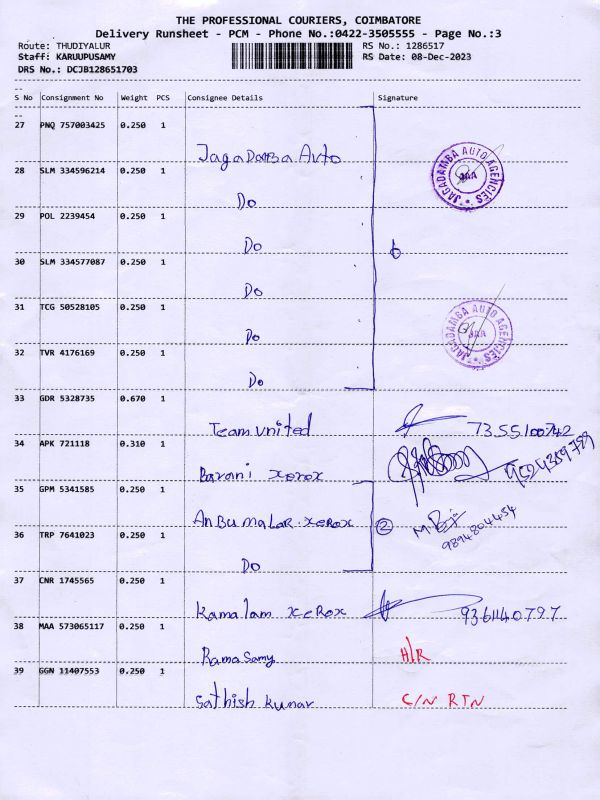 THE PROFESSIONAL COURIERS, COIMBATORE
Delivery Runsheet - PCM - Phone No.:0422-3505555 - Page No.:3
Route: THUDIYALUR RS No.: 1286517
Staff: KARUUPUSAMY RS Date: 08-Dec-2023
DRS No.: DCJB128651703
--
S No Consignment No Weight PCS Consignee Details Signature
--
27 PNQ 757003425 0.250 1
JagaDamba Auto
JAGADAMBA AUTO AGENCIES
JAA
28 SLM 334596214 0.250 1
Do
29 POL 2239454 0.250 1
Do 6
30 SLM 334577087 0.250 1
Do
31 TCG 50528105 0.250 1
Do
JAGADAMBA AUTO AGENCIES
JAA
32 TVR 4176169 0.250 1
Do
33 GDR 5328735 0.670 1
Team United 7355100742
34 APK 721118 0.310 1
Barani xerox
35 GPM 5341585 0.250 1
Anbu malar xerox 2
9894804454
36 TRP 7641023 0.250 1
Do
37 CNR 1745565 0.250 1
Kamalam xerox 9361140797
38 MAA 573065117 0.250 1
Rama Samy H/R
39 GGN 11407553 0.250 1
Sathish kumar C/N RTN